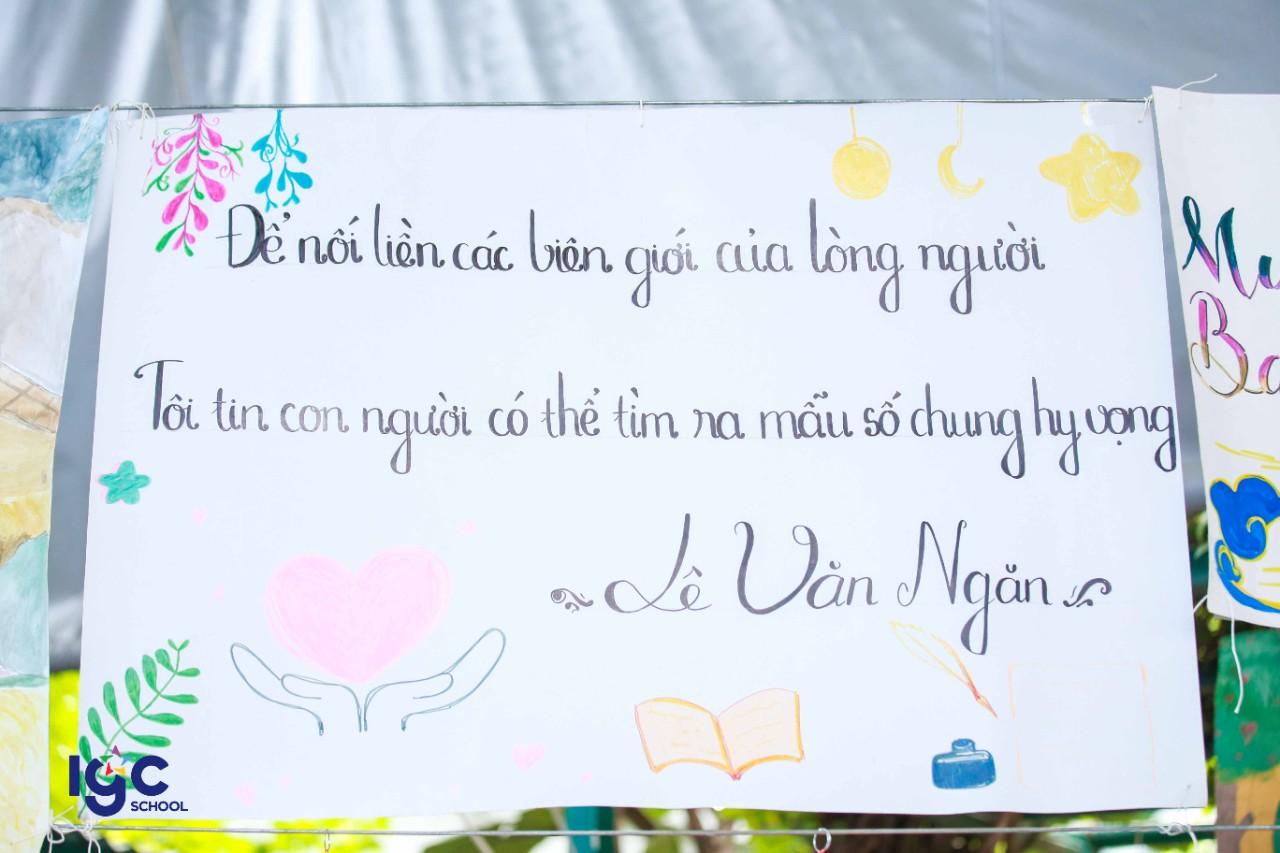 Để nối liền các biên giới của lòng người
Tôi tin con người có thể tìm ra mẫu số chung hy vọng
Lê Văn Ngăn
IGC
SCHOOL